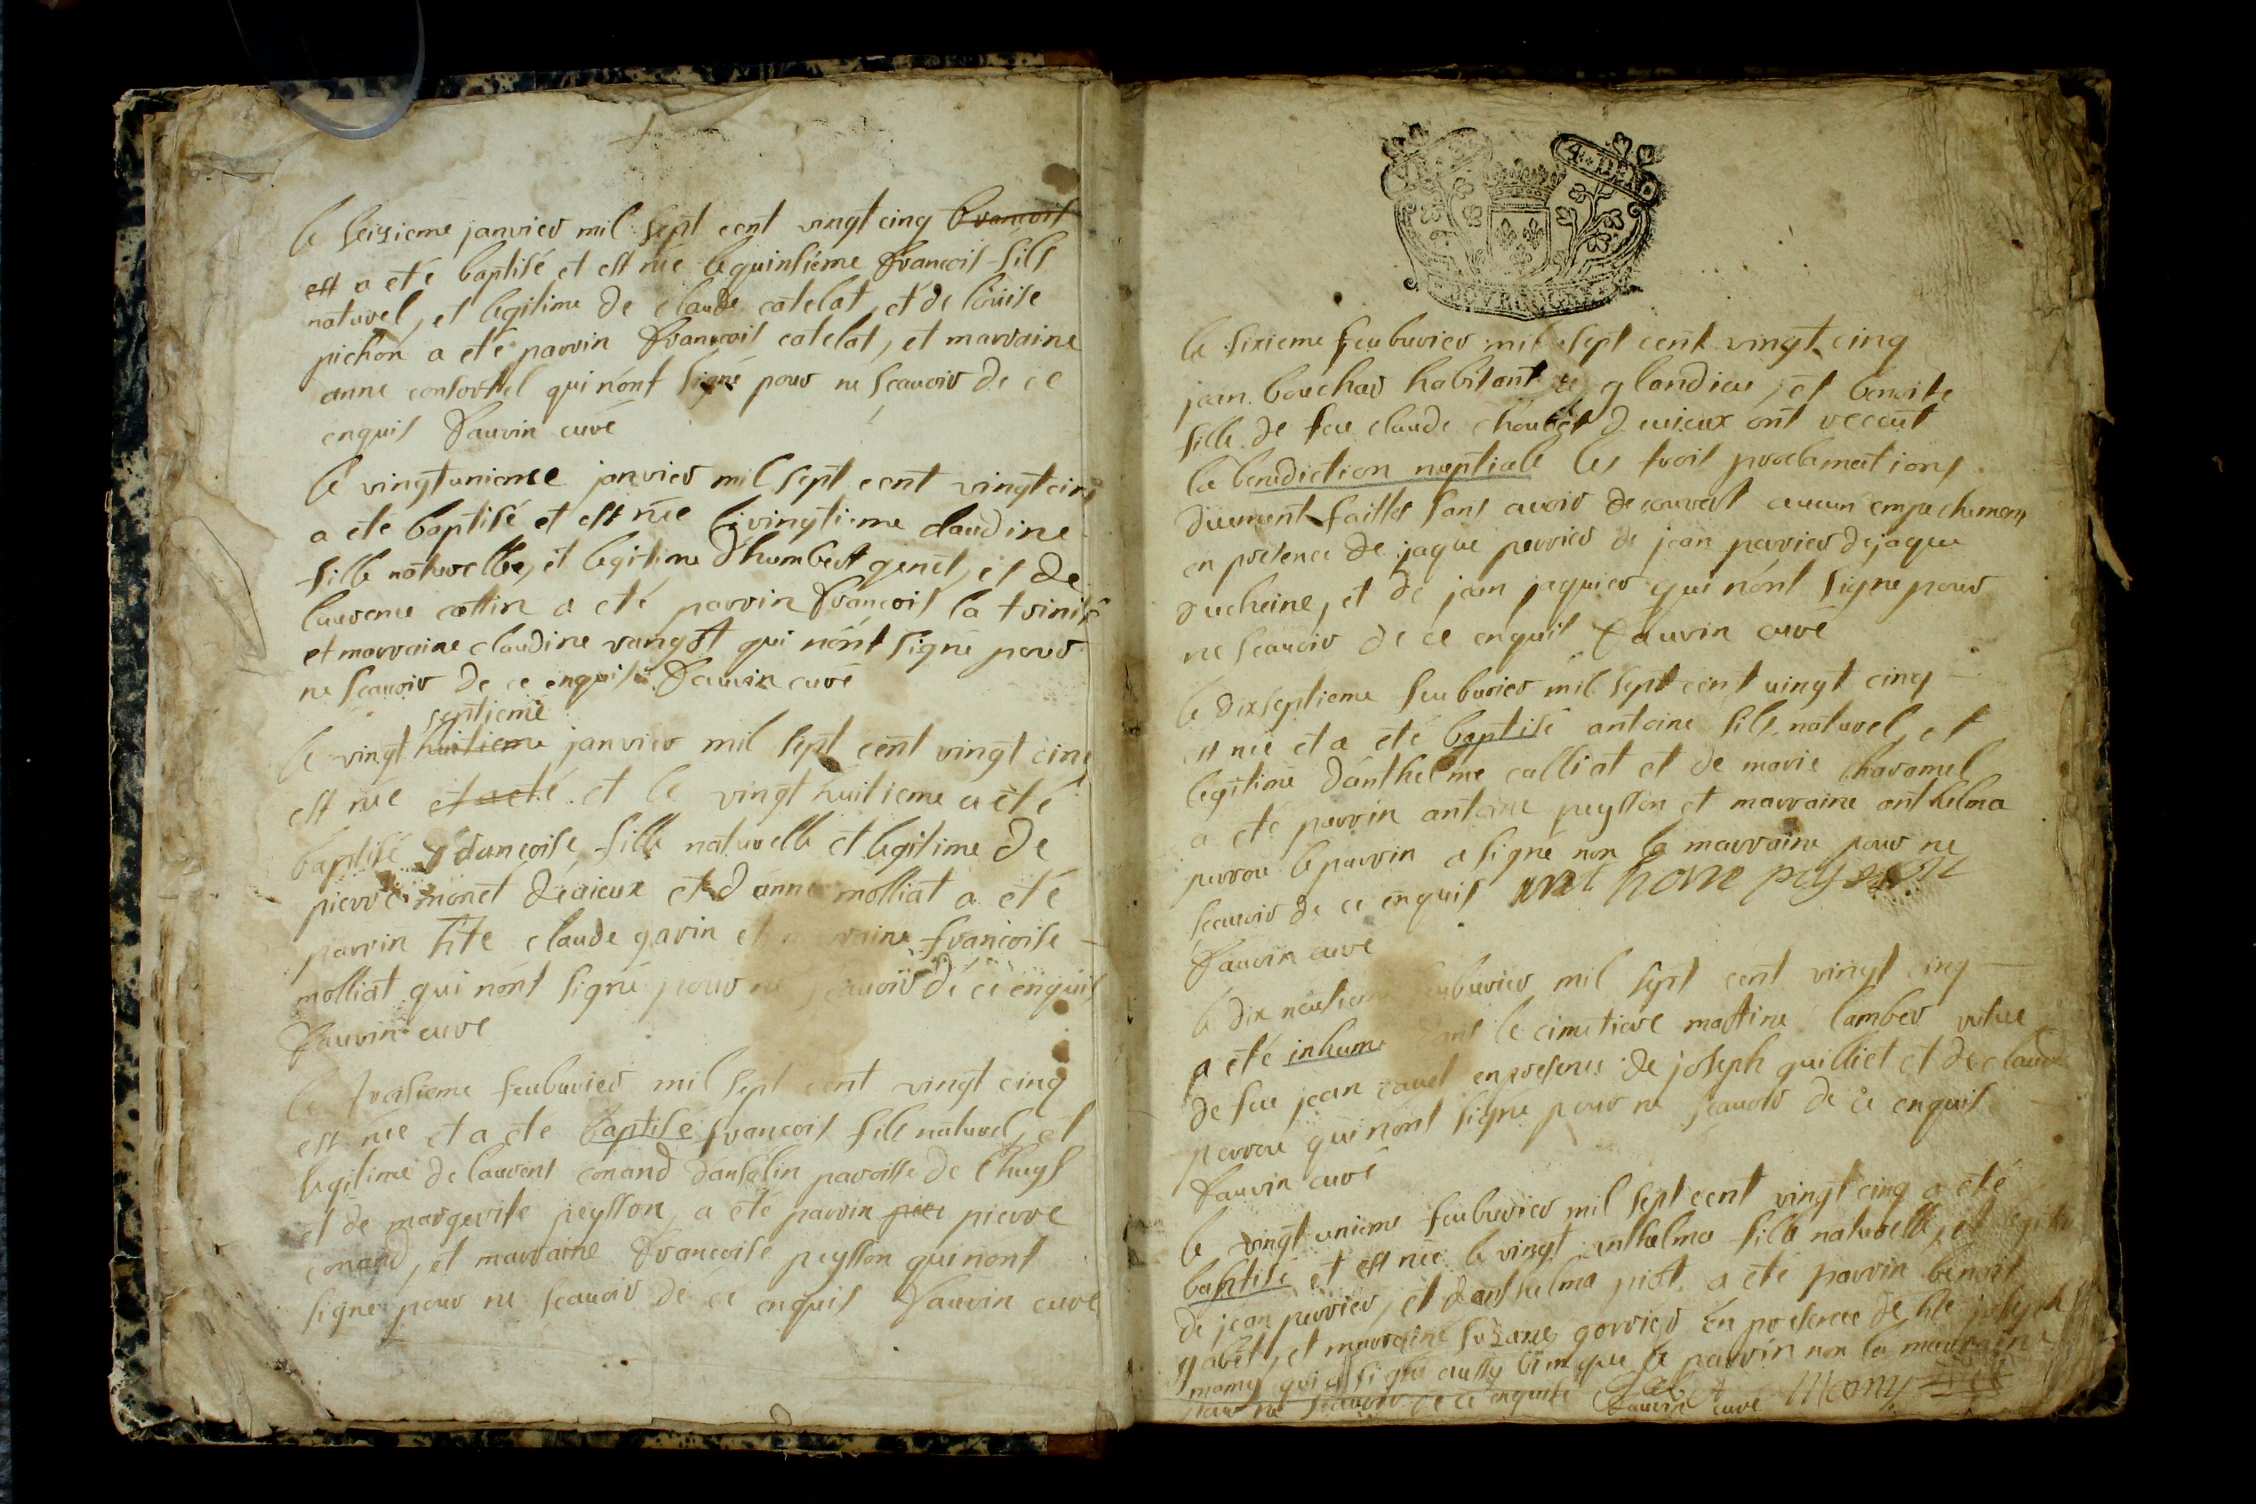 le seizieme janvier mil sept cent vingt cinq francois
est a eté baptisé et est née le quinsiéme francois fils
naturel, et legitime de claude catelat, et de loüise
pichon a eté parrin francois catelat, et marraine
anne consortel qui n'ont signé pour ne scavoir de ce
enquis fauvin curé
le vingtunieme janvier mil sept cent vingt cinq
a eté baptisé et est née le vingtieme claudine
fille naturelle, et legitime d'humbert genet, et de
laurence cottin a eté parrin francois la trinité
et marraine claudine rangot qui n'ont signé pour
ne scavoir de ce enquis fauvin curé
septieme
le vingt huitieme janvier mil sept cent vingt cinq
est née et a eté et le vingt huitieme a eté
baptisé francoise fille naturelle et legitime de
pierre monet d'evieux et d'anne molliat a eté
parrin hte claude gavin et marraine francoise
molliat qui n'ont signé pour ne scavoir de ce enquis
fauvin curé
le troisieme feubvrier mil sept cent vingt cinq
est née et a eté baptisé francois fils naturel, et
legitime de laurent conand d'ansolin paroisse de lhuys
et de margerite peysson, a eté parrin pier pierre
conand, et marraine francoise peysson qui nont
signe pour ne scavoir de ce enquis fauvin curé
4. DEN
BOURGOGNE
le sixieme feubvrier mil sept cent vingt cinq
jean bouchar habitant de glandieu, et benoite
fille de feu claude choulet d'evieux ont receut
la benediction nuptiale les trois proclamations
duement faittes sans avoir decouvert aucun empechement
en presence de jaque perrier de jean perrier de jaque
ducheine, et de jean jaquier qui n'ont signe pour
ne scavoir de ce enquis fauvin curé
le dixseptieme feubvrier mil sept cent vingt cinq
est née et a eté baptisé antoine fils naturel, et
legitime d'anthelme calliat et de marie charamel
a eté parrin antoine peysson et marraine anthelma
perrou le parrin a signé non la marraine pour ne
scavoir de ce enquis anthone peyson
fauvin curé
le dix neufieme feubvrier mil sept cent vingt cinq
a eté inhumé dans le cimetiere martine lamber vefue
de feu jean cavet en presence de joseph guilliet et de claude
perrou qui n'ont signe pour ne scavoir de ce enquis
fauvin curé
le vingt unieme feubvrier mil sept cent vingt cinq a eté
baptisé et est née le vingt anthelma fille naturelle, et legiti
de jean perrier, et d'anthelma piot a eté parrin benoit
gabet, et marraine suzane gorrier en presence de hte joseph
mony qui a signé aussy bien que le parrin non la marraine
pour ne scavoir de ce enquise Gabet Mony
fauvin curé